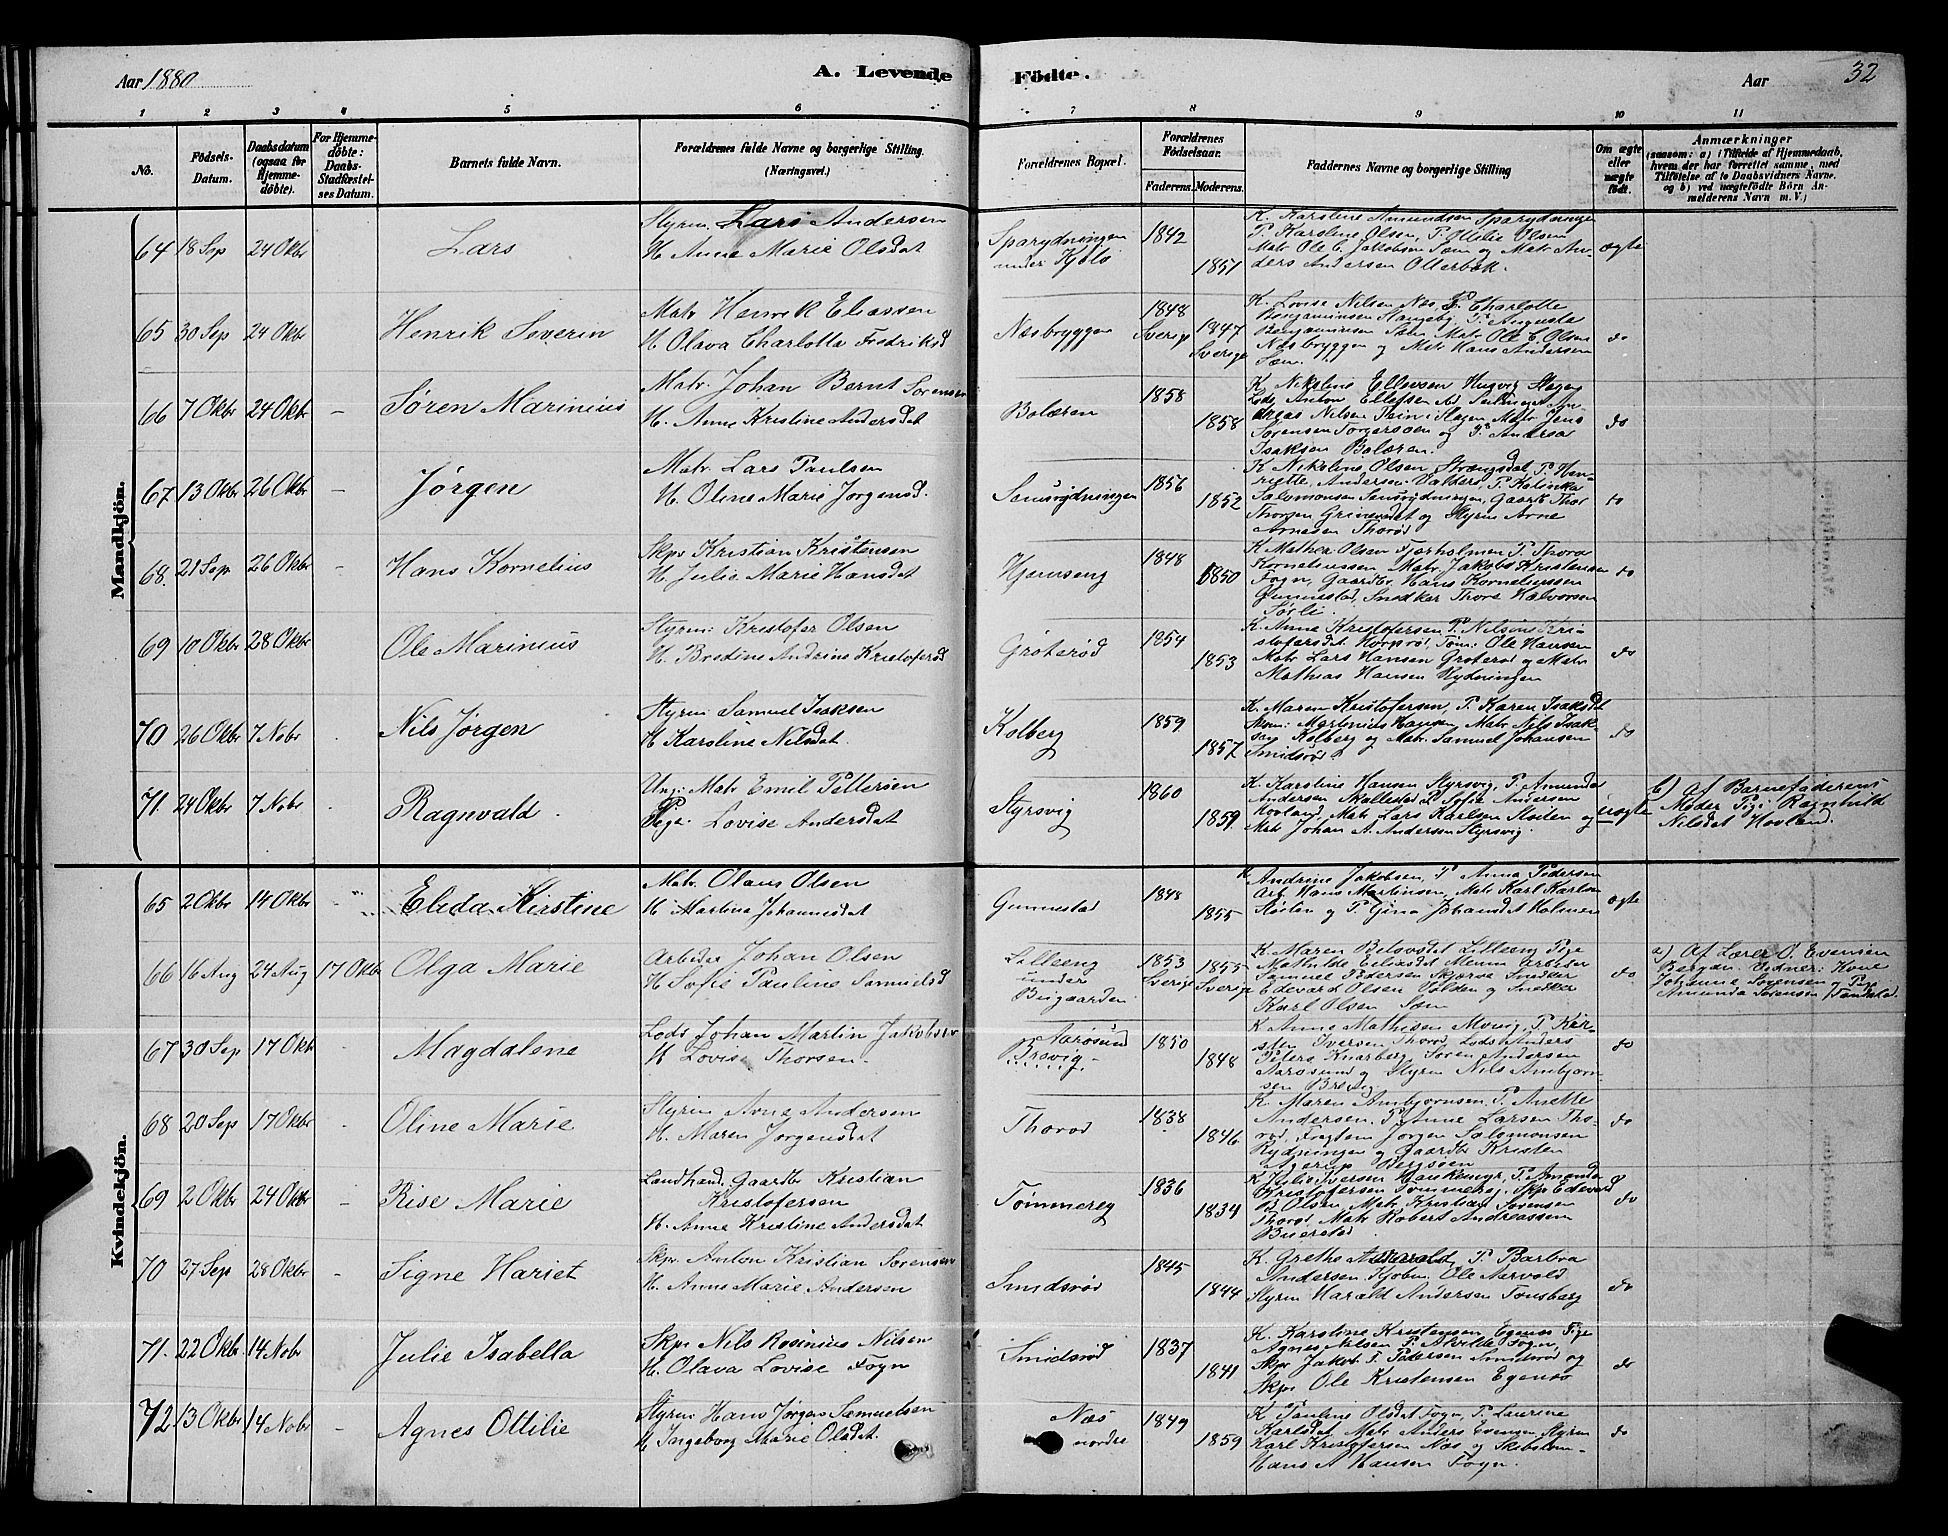 Aar 1880
A. Levende Födte.
Aar
32
1 2 3 4 5 6 7 8 9 10 11
No.
Födsels-Datum.
Daabsdatum (ogsaa for Hjemme-döbte).
For Hjemme-döbte: Daabs-Stadfæstel-ses Datum.
Barnets fulde Navn.
Forældrenes fulde Navne og borgerlige Stilling. (Næringsvei.)
Forældrenes Bopæl.
Forældrenes Födselsaar.
Faderens. Moderens.
Faddernes Navne og borgerlige Stilling
Om ægte eller uægte födt.
Anmærkninger
(saasom: a) i Tilfælde af Hjemmedaab,
hvem der har forrettet samme, med
Tilföielse af to Daabsvidners Navne,
og b) ved uægtefödte Börn An-
melderens Navn m. V.)
Mandkjön.
64 18 Sep 24 Oktbr Lars
Styrm Lars Andersen
H. Anne Marie Olsdat
Sparydningen
under Kjølø
1842
1851
K. Karoline Amundsen Sparydningen
P. Karoline Olsen, P. Ottilie Olsen
Matr Ole C. Jakobsen Sæm og Matr An-
ders Andersen Otterbæk.
ægte
65 30 Sep 24 Oktbr Henrik Severin
Matr Henrik Eliassen
H. Olava Charlotte Fredriksd
Næsbryggen
1848 Sverige
1847 Sverige
K. Lovise Nilsen Næs, P. Charlotte
Benjaminsen Haugeby, P. Auguste
Benjaminsen Sæm, Matr Ole C. Olsen
Næsbryggen og Matr Hans Andersen
Sæm.
do
66 7 Oktbr 24 Oktbr - Søren Marinius
Matr. Johan Bernt Sørensen
H. Anne Kristine Andersdat
Bolæren
1858
1858
K Nikoline Ellevsen Husvig Slagen
Lods Anton Ellefsen
dreas Nilsen Slagen Matr Jens
Sørensen Torgersøen og P. Andersa
Isaksen Bolæren.
do
67 13 Oktbr 26 Oktbr - Jørgen
Matr. Lars Paulsen
H. Oline Marie Jørgensd.
Semsrydningen
1856
1852
K Nikoline Olsen, Strængsdal, P. Hen-
riette Andersen Valders, P. Kalinka
Salomonsen Semsrydningen, Gaardb Thor
Thorsen Grimestad og Styrm Arne
Arnesen Thorød
do
68. 21 Sep 26 Oktbr - Hans Kornelius
Skpr Kristian Kristensen
H. Julie Marie Hansdat
Hjemseng
1848
1850
K Mathea Olsen Fjærholmen P. Thora
Korneliussen Matr. Jakob Kristensen
Fogn, Gaardbr Hans Korneliussen
Gunnestad, Snedker Thore Halvorsen
Sørli.
do
69 10 Oktbr 28 Oktbr Ole Marinius
Styrm: Kristofer Olsen
H. Bredine Andrine Kristofersd
Grøterød
1854
1853
K. Anne Kristofersen P. Nilsine Kri-
stofersdat Horperød, Tøm: Ole Hansen
Matr Lars Hansen Grøterød og Matr
Mathias Hansen Rydningen
do
70 26 Oktbr 7 Nobr Nils Jørgen
Styrm Samuel Isaksen
H Karoline Nilsdat.
Kolberg
1859
1857
K. Maren Kristofersen, P. Karen Isaksdat
Skom: Martinius Hansen, Matr Nils Isak-
sen Kolberg og Matr. Samuel Johansen
Smidsrød
do
71. 24 Oktbr 7 Nobr Ragnvald.
Ung: Matr Emil Pettersen
Pige: Lovise Andersdat
Styrsvig
1860
1859
K. Karoline Hansen Styrsvig, P. Amunda
Andersen Skallestad P. Sofie Andersen
Hovland, Matr Lars Karlsen Floden og
Matr Johan A. Andersen Styrsvig.
uægte
b) af Barnefaderens
Moder Pige Ragnhild
Nilsdat Hovland.
Kvindekjön.
65 2 Oktbr 14 Oktbr Elida Kirstine
Matr. Olaus Olsen
H. Martina Johannesdat
Gunnestad
1848
1855
K Andrine Jakobsen, P. Anna Pedersen
Arb Hans Martinsen, Matr Karl Karlsen
og P. Gina Johansdat Holmen
ægte
66 16 Aug 24 Aug 17 Oktbr Olga Marie
Arbeider Johan Olsen
H Sofie Pauline Samuelsd
Lilleeng
under
Biugaarden
1853 Sverige
1855 Sverige
K. Maren Lilleeng Pige
Mathilde Eliasdat Menum Arbeider
Samuel Pedersen Skjærve Snedker
Edevard Olsen Volden og Snedker
Karl Olsen Sæm
do
a) Af Lærer O. Evensen
Bergan. Vidner: Kone
Johanne Sørensen og Pige
Amunda Sørensen
67 30 Sep 17 Oktbr Magdalene
Lods Johan Martin Jakobsen
H Lovise Thorsen
Aarøsund
Brøvig
1850
1848
K Anne Mathisen Movig, P. Kir-
sten Iversen Thorød Lods Anders
Peters Knarberg, Søren Andersen
Aarøsund og Styrm Nils Ambjørn-
sen Brøvig
do
68 20 Sep 17 Oktbr Oline Marie
Styrm Arne Andersen
H. Maren Jørgensdat
Thorød
1838
1846
K. Maren Ambjørnsen, P. Anette
Andersen, P. Anne Larsen Tho-
rød, Jørgen Salomonsen
Rydningen og Gaardbr Kristen
Agerup Bergsøen
do
69 2 Oktbr 24 Oktbr - Rise Marie
Landhand. Gaardbr Kristian
Kristofersen
H. Anne Kristine Andersdat
Tømmereg
1836
1834
K Julie Iversen P. Amanda
Kristofersen Tømmereg, Skpr Edevard
B. Olsen, Matr Kristian Sørensen
Thorød Matr Robert Andreassen
Buerstad
do
70 27 Sep 28 Oktbr - Signe Hariet
Skpr Anton Kristian Sørensen
H. Anne Marie Andersen
Smidsrød
1845
1844
K. Grethe Aarvold, P. Barbra
Andersen Kjøbm. Ole Aarvold
Styrm Harald Andersen Tønsberg
do
71. 22 Oktbr. 14 Nobr Julie Isabella
Skpr Nils Rosinius Nilsen
H. Olava Lovise Fogn
Smidsrød
1837
1841
K. Karoline Kristensen Egenæs Pige
Agnes Nilsen P. Alvilde Fogn,
Skpr Jakob F. Pedersen Smidsrød og
Skpr Ole Kristensen Egenæs
do
72. 13 Oktbr 14 Nobr - Agnes Ottilie
Styrm Hans Jørgen Samuelsen
H Ingeborg Marie Olsdat.
Næs
nordre
1849
1859
K Pauline Olsdat Fogn, P. Laurine
Karlsdat Matr Anders Evensen, Styrm
Karl Kristofersen Næs og Skibstøm-
Hans A Hansen Fogn.
do